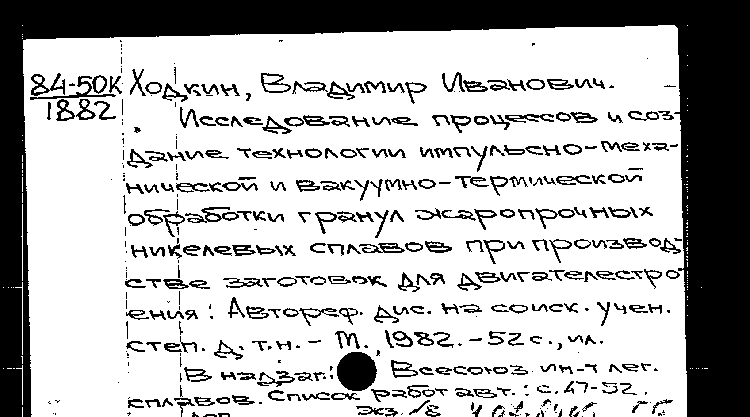 84-50К Ходкин, Владимир Иванович.
1882
Исследование процессов и соз-
дание технологии импульсно-меха-
нической и вакуумно-термической
обработки гранул жаропрочных
никелевых сплавов при производ-
стве заготовок для двигателестро-
ения: Автореф. дис. на соиск. учен.
степ. д. т.н. - М., 1982. - 52 с., ил.
В надзаг.: Всесоюз. ин-т лег.
сплавов. Список работ авт.: с. 47-52.
экз. 18